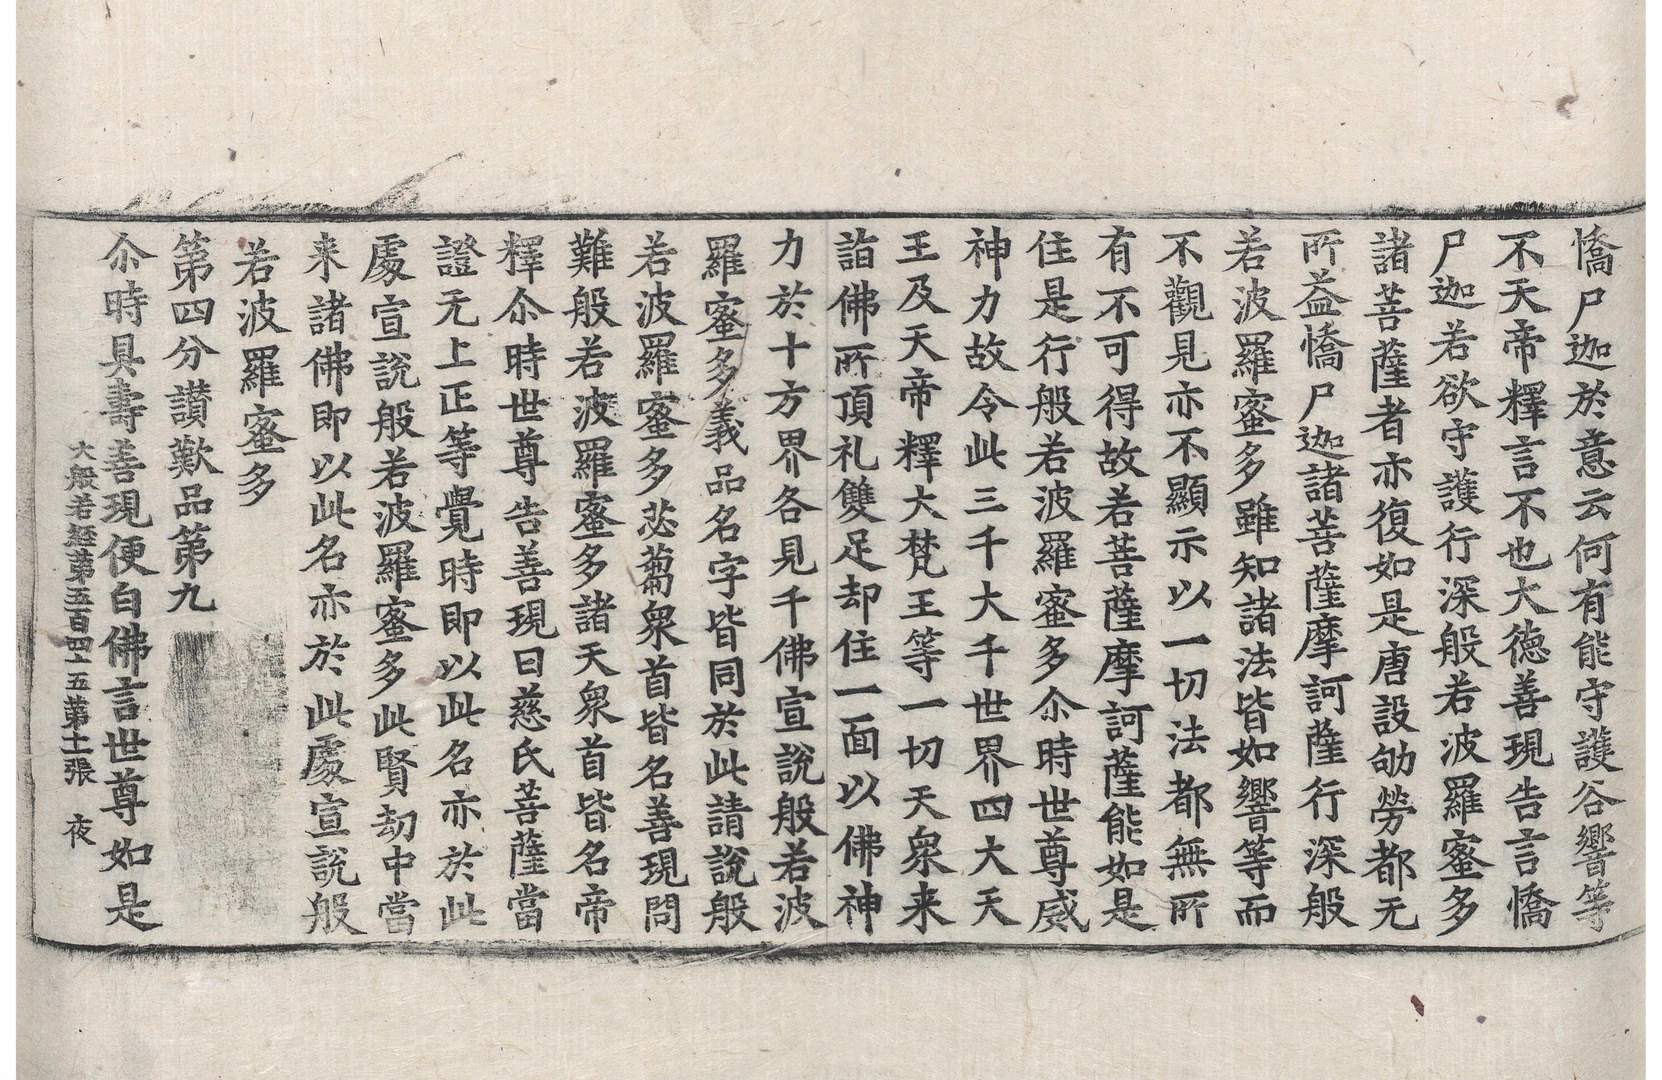 憍尸迦於意云何有能守護谷響等
不天帝釋言不也大德善現告言憍
尸迦若欲守護行深般若波羅蜜多
諸菩薩者亦復如是唐設劬勞都无
所益憍尸迦諸菩薩摩訶薩行深般
若波羅蜜多雖知諸法皆如響等而
不觀見亦不顯示以一切法都無所
有不可得故若菩薩摩訶薩能如是
住是行般若波羅蜜多尒時世尊威
神力故令此三千大千世界四大天
王及天帝釋大梵王等一切天衆来
詣佛所頂礼雙足却住一面以佛神
力於十方界各見千佛宣說般若波
羅蜜多義品名字皆同於此請說般
若波羅蜜多苾蒭衆首皆名善現問
難般若波羅蜜多諸天衆首皆名帝
釋尒時世尊告善現曰慈氏菩薩當
證无上正等覺時即以此名亦於此
處宣說般若波羅蜜多此賢劫中當
来諸佛即以此名亦於此處宣說般
若波羅蜜多
第四分讃歎品第九
尒時具壽善現便白佛言世尊如是
大般若経第五百四十五第十二張 夜